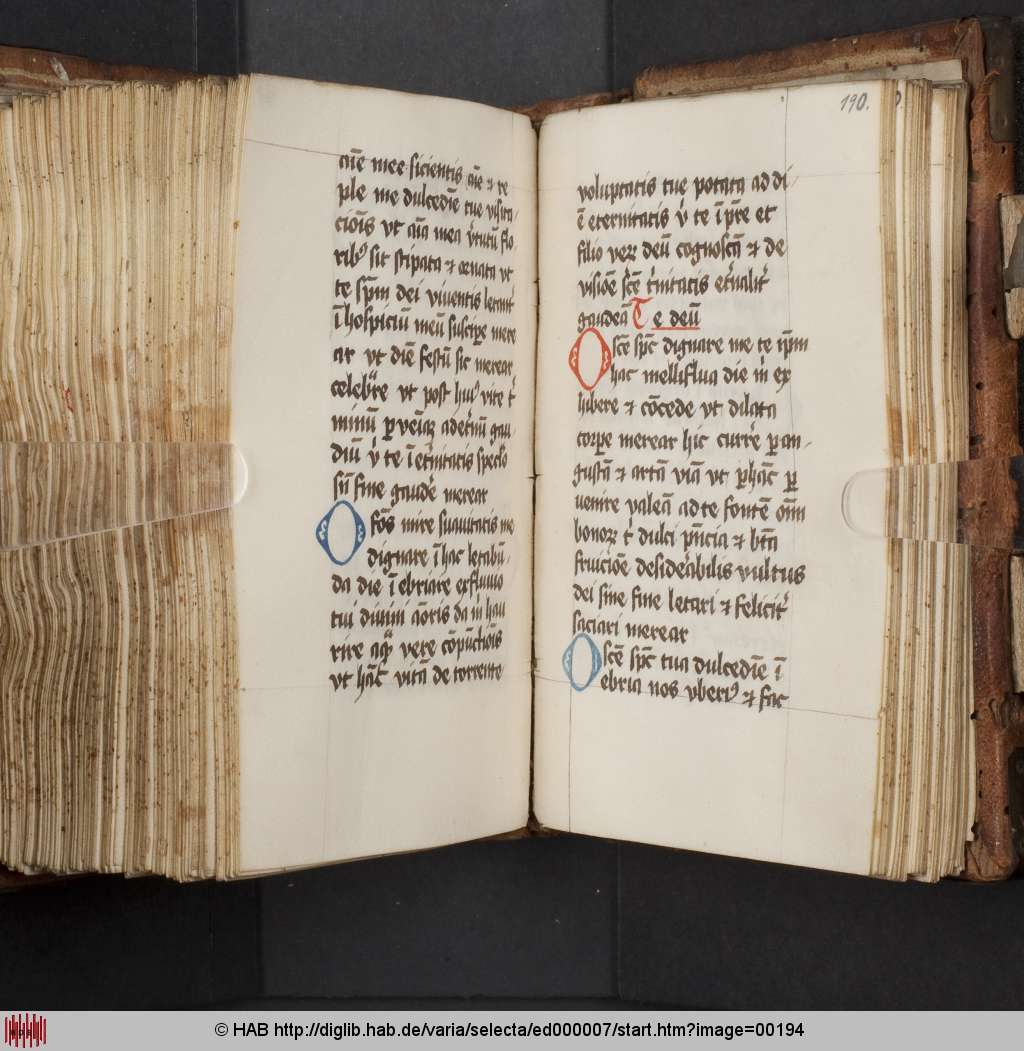 aīe mee sicientis aīe ⁊ re
ple me dulcedīe tue visita
cionis vt aīa mea v̓tutū flo
ribꝰ sit stipata ⁊ ornata vt
te spm̄ dei viventis letant̓
ī hospiciū meū suscipe mere
ar vt diē festū sic merear
celebrare vt post huiꝰ vite t̓
minū ꝑveīaꝫ adet̓nū gau
diū v̓ te ī et̓nitatis speclo
sū fine gaud̓e merear
O fōs mire suauitatis me
dignare ī hac letabū
da die īebriare exfluuio
tui diuini aōris da m̓ hau
rire aquā vere cōpūctiōis
vt hāc vitā de torrente
190.
voluptatis tue potata ad di
ē eternitatis v̓ te ī pr̄e et
filio verꝫ deū cognoscā ⁊ de
visiōe sc̄e t̓nitatis et̓nalit̓
gaudeā Te deū
O sc̄e spc̄ dignare me te ip̄m
hac melliflua die m̓ ex
hibere ⁊ cōcede vt dilata
corꝑe merear hic curr̓e ꝑ an
gustā ⁊ artā viā vt ꝑ hāc ꝑ
uenire valeā ad te fontē oīm
bonoꝝ t̓ dulci pn̄cia ⁊ btā
fruiciōe desiderabilis vultus
dei sine fine letari ⁊ felicit̓
saciari merear
O sc̄e spc̄ tua dulcedīe ī
ebria nos vberiꝰ ⁊ fac
© HAB http://diglib.hab.de/varia/selecta/ed000007/start.htm?image=00194